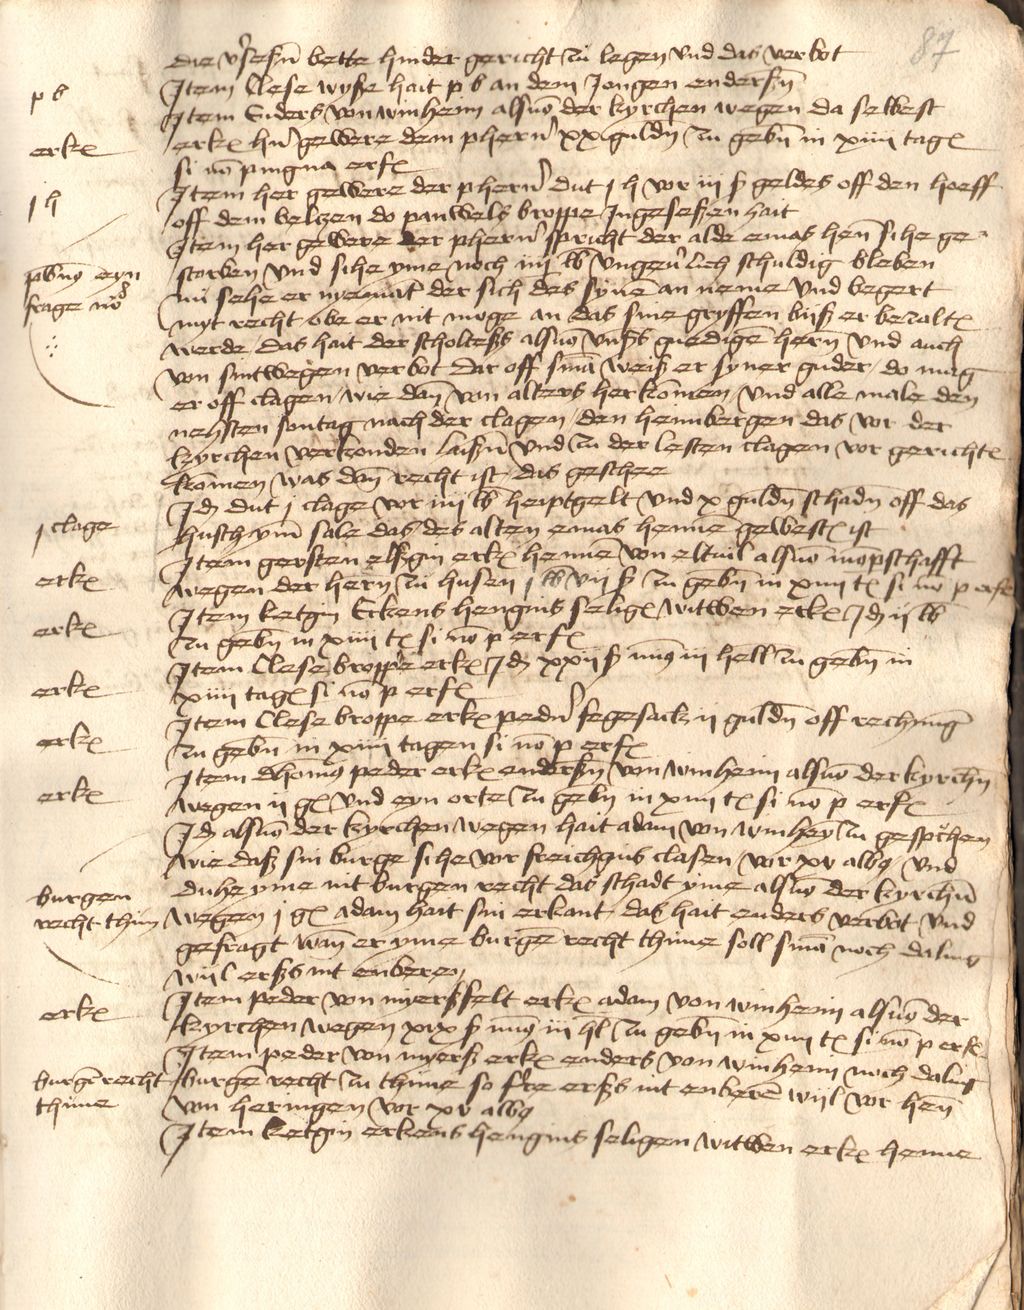 87
die v'seßn bette hinder gericht zu legen vnd das verbot
p b
Item Clese wyße hait p b an dem Jongen enderßn
Item Enders von winheim alsuo der kyrchen wegen da selbest
erk
erk hn gewere dem phern' xx guldn zu gebn in xiiii tag
si no pingnra erf
j h
Item her gewere der phern' dut j h vor iii ß geldes off den hoeff
off dem beltzen do pauwels broppe Ingeseßen hait
Item her gewere der phern' spricht der alde emas hen sihe ge
storben vnd sihe yme noch iiij lb vngeu'lich schuldig bleben
eyn
frage
nu sehe er nyemant der sich des synen an neme vnd begert
myt recht obe er nit moge an das sine gryffen biß er bezalt
werde das hait der scholteß alsuo vnßs gnedige hern vnd auch
von sint wegen verbot dar off weiß er syner guder do mag
er off clagen wie dan von alters herkomen vnd alle male den
nehsten sontag nach der clagen den heimbergen das vor der
kyrchen verkonden laißn vnd zu der lesten clagen vor gericht
komen was dan recht ist das geschee
j clage
Jd dut j clage vor iiij lb heiptgelt vnd x guldn schadn off das
husch ym sale das des alten emas henne gewest ist
erk
Item gersten elsgin erk henne von eltuil alsuo mopschafft
wegen der hern zu husen j lb vij ß zu gebn in xiiii t si no p erf
erk
Item ketgin Eckens hengins selig witwen erk Jd ij lb
zu gebn in xiiii t si no p erf
erk
Item Clese broppe erk Jd xxij ß mns iij hell zu gebn in
xiiii tag si no p erf
erk
Item Clese broppe erk pedn' fegesack ij guldn off rechnung
zu gebn in xiiii tagen si no p erf
erk
Item peder erk enderßn von winheim alsuo der kyrchn
wegen ij g vnd eyn orte zu gebn in xiiii t si no p erf
Jd alsuo der kyrchen wegen hait adam von winhey zu gesprochen
wie daß sin burge sihe vor freichgins clasen vor xv albq vnd
burgen
recht thun
duhe yme nit burgen recht das schadt yme alsuo der kyrchn
wegen j g adam hait sin erkant das hait enders verbot vnd
gefragt wan er yme burge recht thune soll noch daling
wijl erßs nit enberen
erk
Item peder von myerßfelt erk adam von winheim alsuo der
kyrchen wegen xix ß mns iij hl zu gebn in xiiii t si no p erf
burge recht
thune
Item peder von myerß erk enders von winheim noch daling
burge recht zu thune so f're erßs nit enbere wijl vor hen
von heringen vor xv albq
Item ketgin erkens hengins seligen witwen erk henne